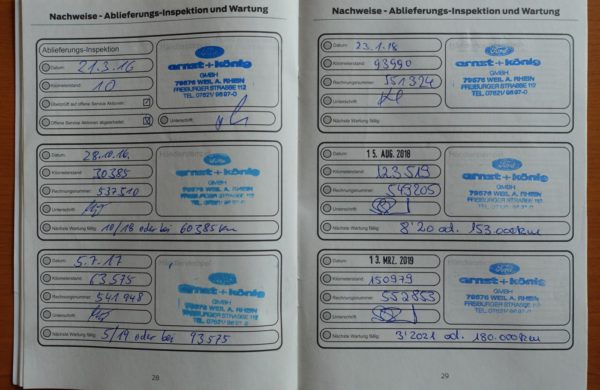 Nachweise - Ablieferungs-Inspektion und Wartung
Ablieferungs-Inspektion
Datum: 21.3.16
Kilometerstand: 10
Überprüft auf offene Service Aktionen:
Offene Service Aktionen abgearbeitet:
Unterschrift:
Ford
arnst+könig
GMBH
79576 WEIL A. RHEIN
FREIBURGER STRASSE 112
TEL. 07621/9697-0
Datum: 28.10.16
Kilometerstand: 30385
Rechnungsnummer: 537510
Unterschrift:
Ford
arnst+könig
GMBH
79576 WEIL A. RHEIN
FREIBURGER STRASSE 112
TEL. 07621/9697-0
Nächste Wartung fällig: 10/18 oder bei 60385 km
Datum: 5.7.17
Kilometerstand: 63575
Rechnungsnummer: 541948
Unterschrift:
arnst+könig
GMBH
79576 WEIL A. RHEIN
FREIBURGER STRASSE 112
TEL. 07621/9697-0
Nächste Wartung fällig: 5/19 oder bei 93575
28
Nachweise - Ablieferungs-Inspektion und Wartung
Datum: 23.1.18
Kilometerstand: 93990
Rechnungsnummer: 551324
Unterschrift:
Ford
arnst+könig
GMBH
79576 WEIL A. RHEIN
FREIBURGER STRASSE 112
TEL. 07621/9697-0
Nächste Wartung fällig:
Datum: 15. AUG. 2018
Kilometerstand: 123519
Rechnungsnummer: 549205
Unterschrift:
Ford
arnst+könig
GMBH
79576 WEIL A. RHEIN
FREIBURGER STRASSE 112
TEL. 07621/9697-0
Nächste Wartung fällig: 8'20 od. 153.000km
Datum: 13. MRZ. 2019
Kilometerstand: 150979
Rechnungsnummer: 552853
Unterschrift:
Ford
arnst+könig
GMBH
79576 WEIL A. RHEIN
FREIBURGER STRASSE 112
TEL. 07621/9697-0
Nächste Wartung fällig: 3'2021 od. 180.000km
29